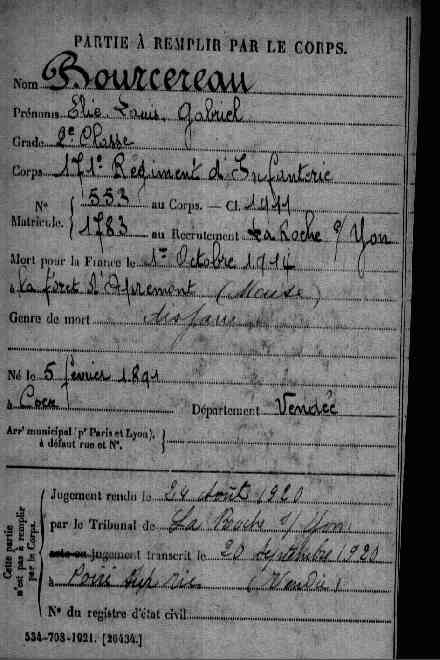 PARTIE À REMPLIR PAR LE CORPS.
Nom Bourcereau
Prénoms Elie Louis Gabriel
Grade 2e Classe
Corps 171e Régiment d'Infanterie
N° Matricule. { 553 au Corps. — Cl. 1911
1783 au Recrutement La Roche s/ Yon
Mort pour la France le 1er Octobre 1914
à la foret d'Apremont (Meuse)
Genre de mort disparu
Né le 5 février 1891
à Département Vendée
Arrt municipal (pr Paris et Lyon), à défaut rue et N°. }
Cette partie n'est pas à remplir par le Corps.
Jugement rendu le 24 Août 1920
par le Tribunal de La Roche s/ Yon
acte ou jugement transcrit le 20 septembre 1920
à Poiré sup vie (Vendée)
N° du registre d'état civil
534-708-1921. [26434.]